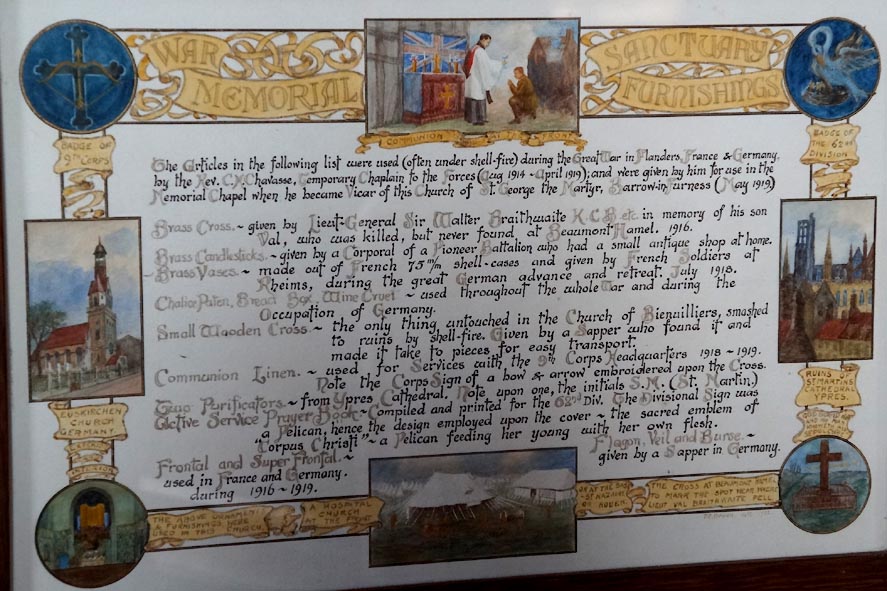 WAR
MEMORIAL
SANCTUARY
FURNISHINGS
COMMUNION AT THE FRONT
BADGE OF
9TH CORPS
BADGE OF
THE 62ND
DIVISION
The Articles in the following list were used (often under shell-fire) during the Great War in Flanders, France & Germany,
by the Rev. C.M. Chavasse, Temporary Chaplain to the Forces (Aug 1914 - April 1919); and were given by him for use in the
Memorial Chapel when he became Vicar of this Church of St. George the Martyr, Barrow-in-Furness (May 1919)
Brass Cross. - given by Lieut-General Sir Walter Braithwaite K.C.B. etc. in memory of his son
Val, who was killed, but never found at Beaumont Hamel. 1916.
Brass Candlesticks. - given by a Corporal of a Pioneer Battalion who had a small antique shop at home.
Brass Vases. - made out of French 75 m/m shell-cases and given by French Soldiers at
Rheims, during the great German advance and retreat. July 1918.
Chalice Paten, Bread Box, Wine Cruet ~ used throughout the whole War and during the
Occupation of Germany.
Small Wooden Cross. ~ the only thing untouched in the Church of Bienvilliers, smashed
to ruins by shell-fire. Given by a Sapper who found it and
made it take to pieces for easy transport.
Communion Linen. ~ used for Services with the 9th Corps Headquarters 1918 ~ 1919.
Note the Corps Sign of a bow & arrow embroidered upon the Cross.
Two Purificators. ~ from Ypres Cathedral. Note upon one, the initials S.M. (St. Martin.)
Active Service Prayer Book - Compiled and printed for the 62nd Div. The Divisional Sign was
a Pelican, hence the design employed upon the cover ~ the sacred emblem of
"Corpus Christi" ~ a Pelican feeding her young with her own flesh.
Frontal and Super Frontal. ~
used in France and Germany.
during 1916 ~ 1919.
Flagon, Veil and Burse. ~
given by a Sapper in Germany.
EUSKIRCHEN
CHURCH
GERMANY
EXTERIOR
RUINS
ST MARTINS
CATHEDRAL
YPRES.
THE ABOVE ORNAMENTS
& FURNISHINGS WERE
USED IN THIS CHURCH
A HOSPITAL
CHURCH
AT THE FRONT
THE CROSS AT BEAUMONT HAMEL
TO MARK THE SPOT NEAR WHERE
LIEUT VAL BRAITHWAITE FELL